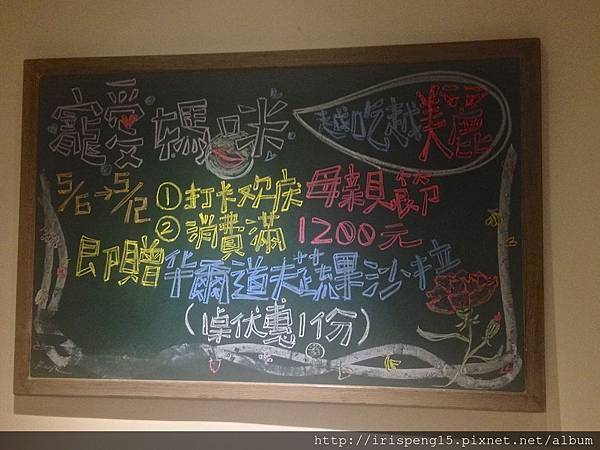 寵愛媽咪
越吃越美麗
5/6→5/12
①打卡欢庆母親節
②消費滿1200元
即贈华爾道夫蔬果沙拉
(桌优惠1份)
http://irispeng15.pixnet.net/album